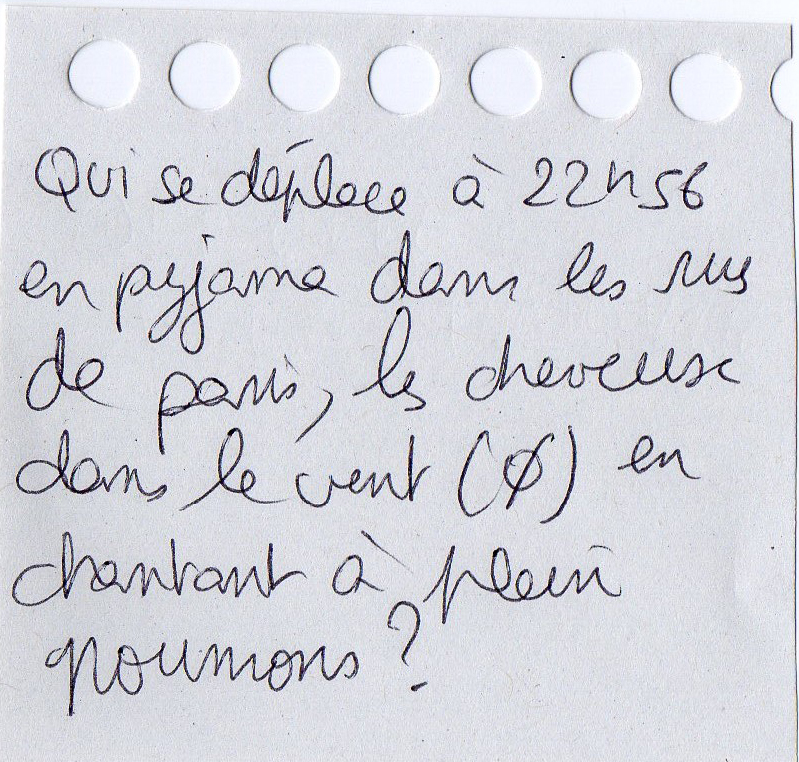 Qui se déplace à 22h56
en pyjama dans les rues
de paris, les cheveux
dans le vent (Ø) en
chantant à plein
poumons?